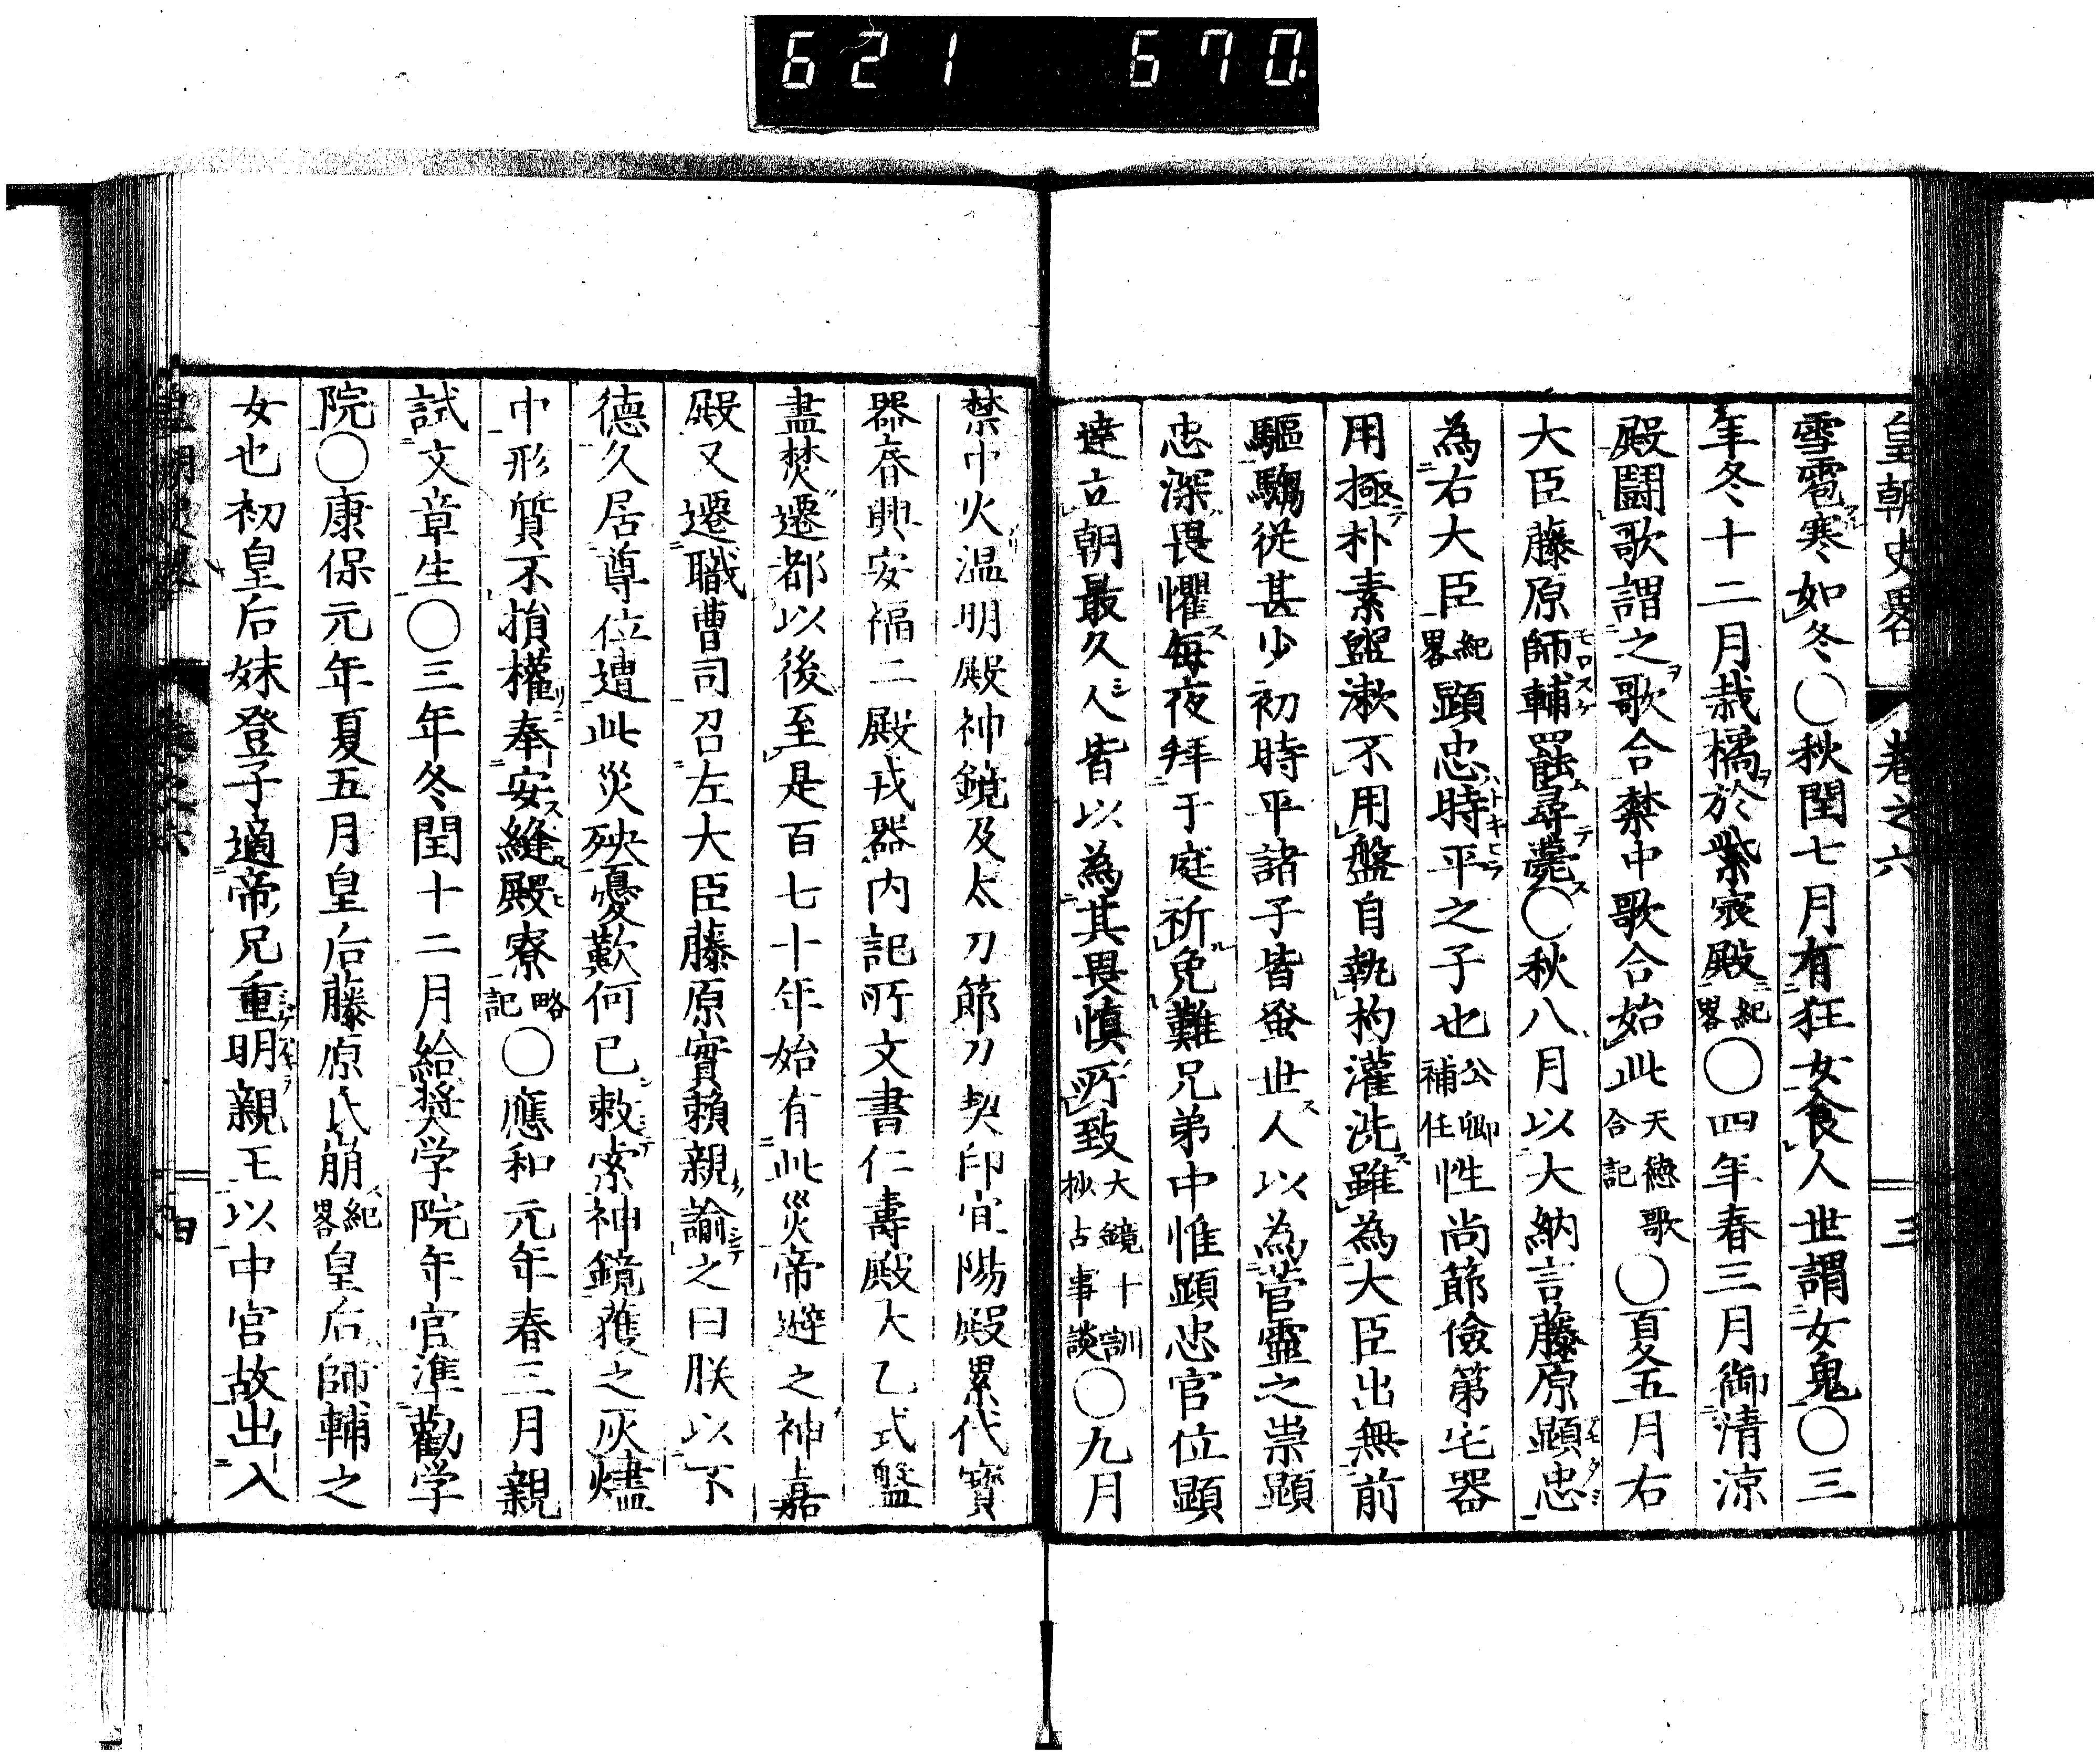 621 670.
皇朝史畧 卷之六 三
雪雹寒如冬〇秋閏七月有狂女食人世謂女鬼〇三
年冬十二月栽橘於紫宸殿紀畧〇四年春三月御清涼
殿鬪歌謂之歌合禁中歌合始此天德歌合記〇夏五月右
大臣藤原師輔罷尋薨〇秋八月以大納言藤原顕忠
為右大臣紀畧顕忠時平之子也公卿補任性尚節儉第宅器
用極朴素盥漱不用盤自執杓灌洗雖為大臣出無前
驅騶從甚少初時平諸子皆蚤世人以為菅靈之祟顕
忠深畏懼每夜拜于庭祈免難兄弟中惟顕忠官位顕
達立朝最久人皆以為其畏慎所致大鏡十訓抄古事談〇九月
禁中火温明殿神鏡及太刀節刀契印宜陽殿累代寶
器春興安福二殿戎器内記所文書仁壽殿大乙式盤
盡焚遷都以後至是百七十年始有此災帝避之神嘉
殿又遷職曹司召左大臣藤原實賴親諭之曰朕以下
德久居尊位遭此災殃憂歎何已敕索神鏡獲之灰燼
中形質不損權奉安縫殿寮略記〇應和元年春三月親
試文章生〇三年冬閏十二月給奬学院年官準勸学
院〇康保元年夏五月皇后藤原氏崩紀畧皇后師輔之
女也初皇后妹登子適帝兄重明親王以中宮故出入
皇朝史畧 卷之六 四